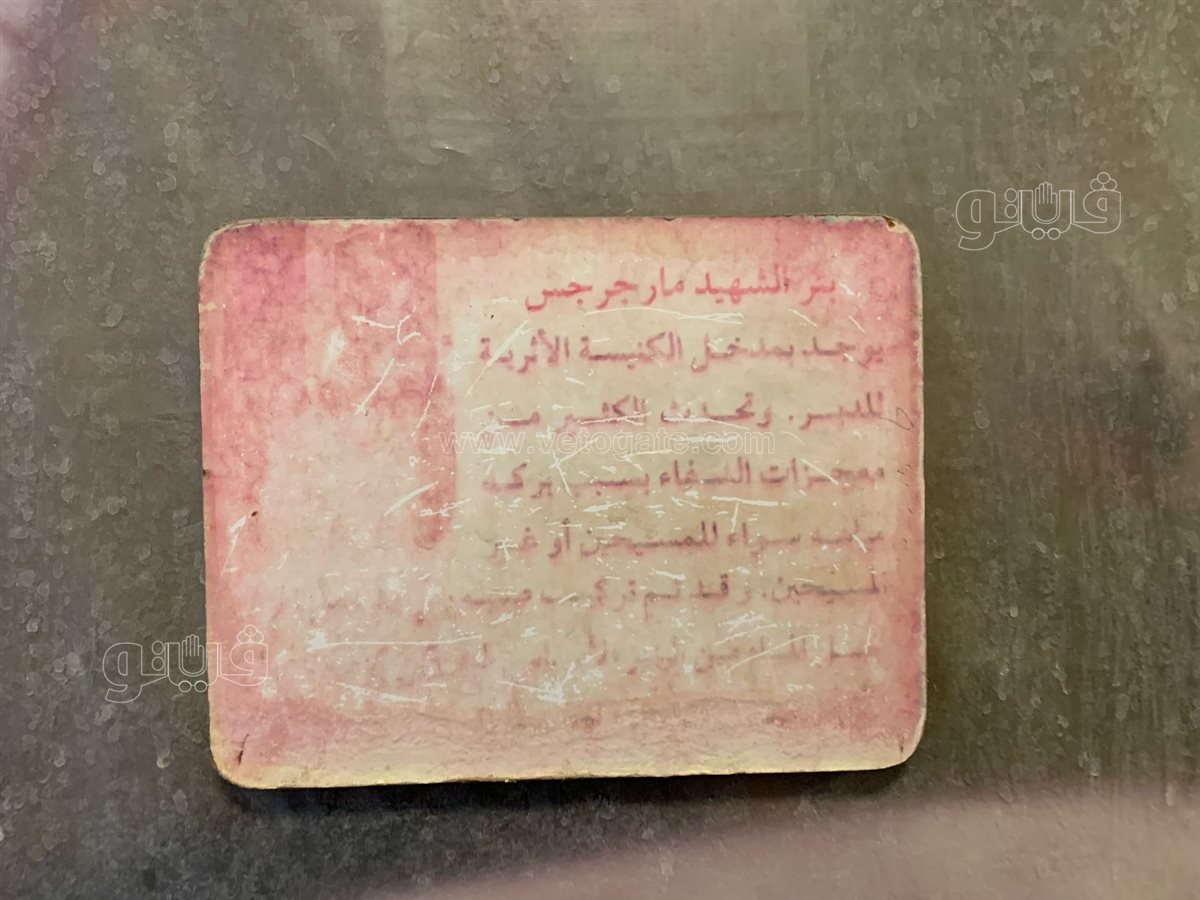 بئر الشهيد مارجرجس
يوجد بمدخل الكنيسة الأثرية
للدير. وتحدث الكثير من
معجزات الشفاء بسبب بركة
مياهه سواء للمسيحين أو غير
لمسيحين. وقد تم تركيب
فيتو
www.vetogate.com
فيتو